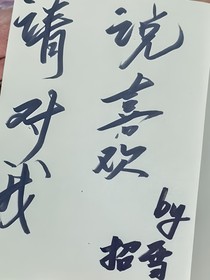 請对我
说喜欢
by
招雪